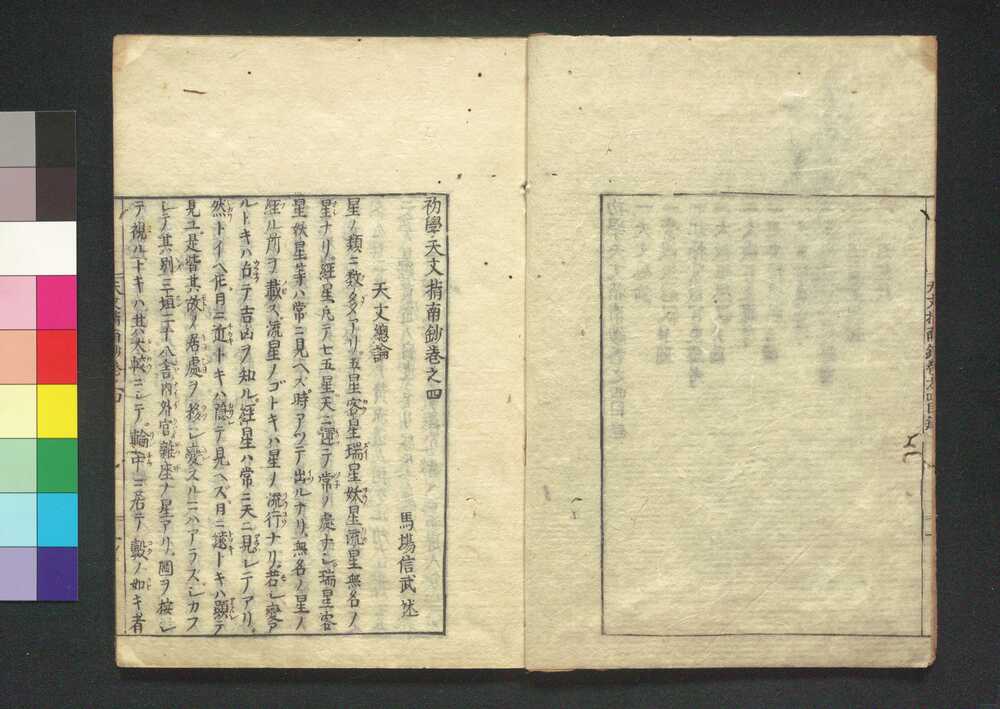 初學天文指南鈔巻之四
馬場信武述
天文總論
星ノ類ニ数多アリ五星客星瑞星妖星流星無名ノ
星ナリ經星凡テ七五星天ニ運テ常ノ處ナシ瑞星客
星妖星等ハ常ニ見ヘズ時アツテ出ルナリ無名ノ星ノ
經ル所ヲ載ス流星ノゴトキハ星ノ流行ナリ若シ変ア
ルトキハ占テ吉凶ヲ知ル經星ハ常ニ天ニ見レテアリ
然トイヘ𪜈月ニ近トキハ隠テ見ヘズ月ニ遠トキハ顕テ
見ユ是皆其故ノ居處ヲ移シ変スルニハアラズシカフ
シテ其別三垣二十八舎内外官雜座ノ星アリ圖ヲ按シ
テ視ルトキハ其大較ニシテ輪中ニ居テ轂ノ如キ者
天文指南鈔巻四